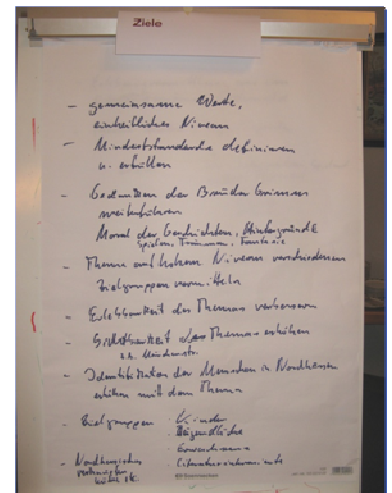 Ziele
- gemeinsame Werte,
einheitliches Niveau
- Mindeststandards definieren
u. erfüllen
- Gedanken der Brüder Grimm
weiterführen
Moral der Geschichten, Hintergründe
Spielen, Träumen, Fantasie
- Thema auf hohem Niveau verschiedenen
Zielgruppen vermitteln
- Erlebbarkeit des Themas verbessern
- Sichtbarkeit des Themas erhöhen
z.B.
- Identifikation der Menschen in Nordhessen
erhöhen mit dem Thema
- Zielgruppen: Kinder
Jugendliche
Erwachsene
Literaturinteressierte
- Nordhessisches